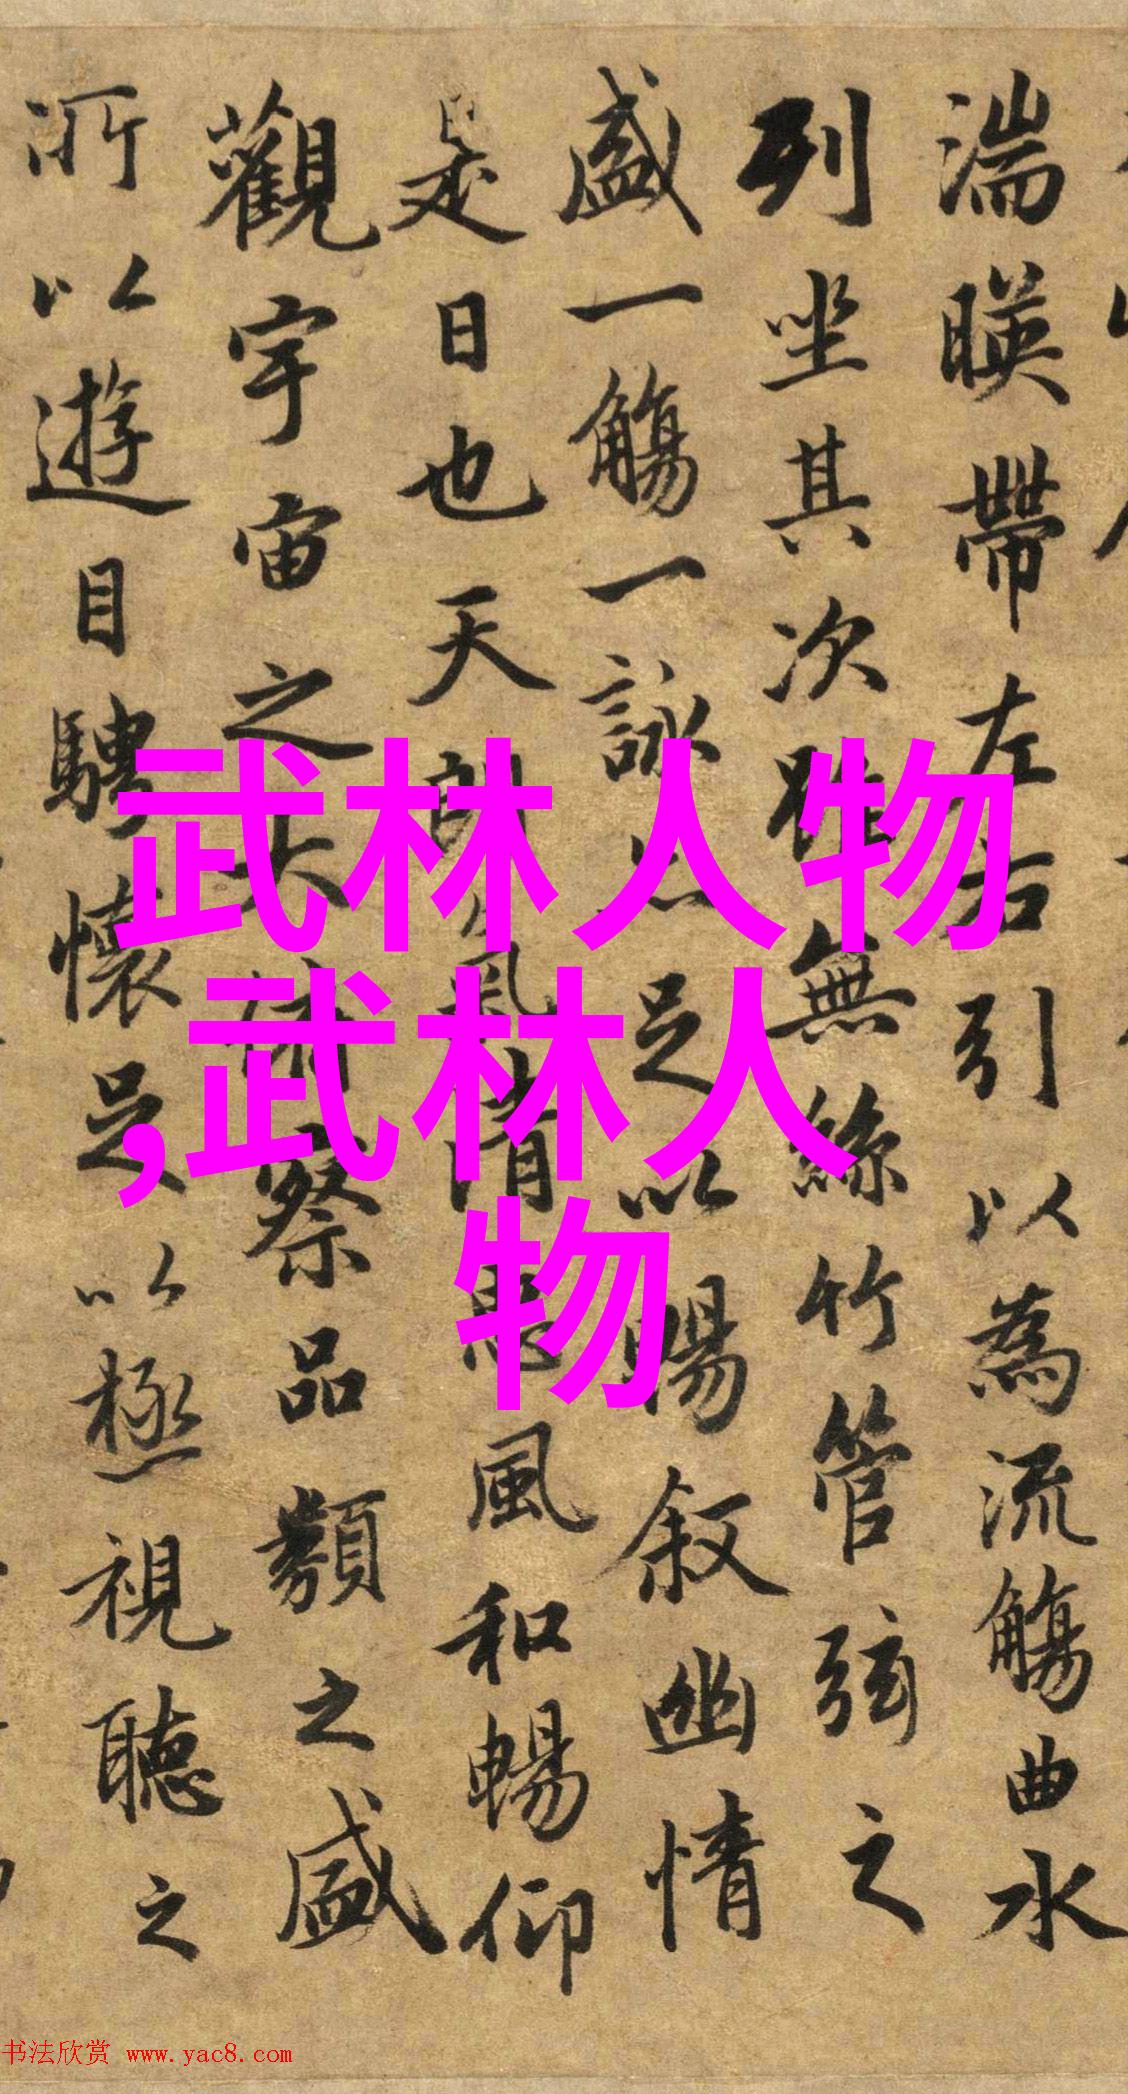 湍暎帶左右引以為流觴曲水
列坐其次雖無絲竹管弦之
盛一觴一詠亦足以暢叙幽情
是日也天朗氣清恵風和暢仰
觀宇宙之大俯察品類之盛
所以遊目騁懷足以極視聽之
武林人物
,武林人
物
书法欣赏 www.yac8.com